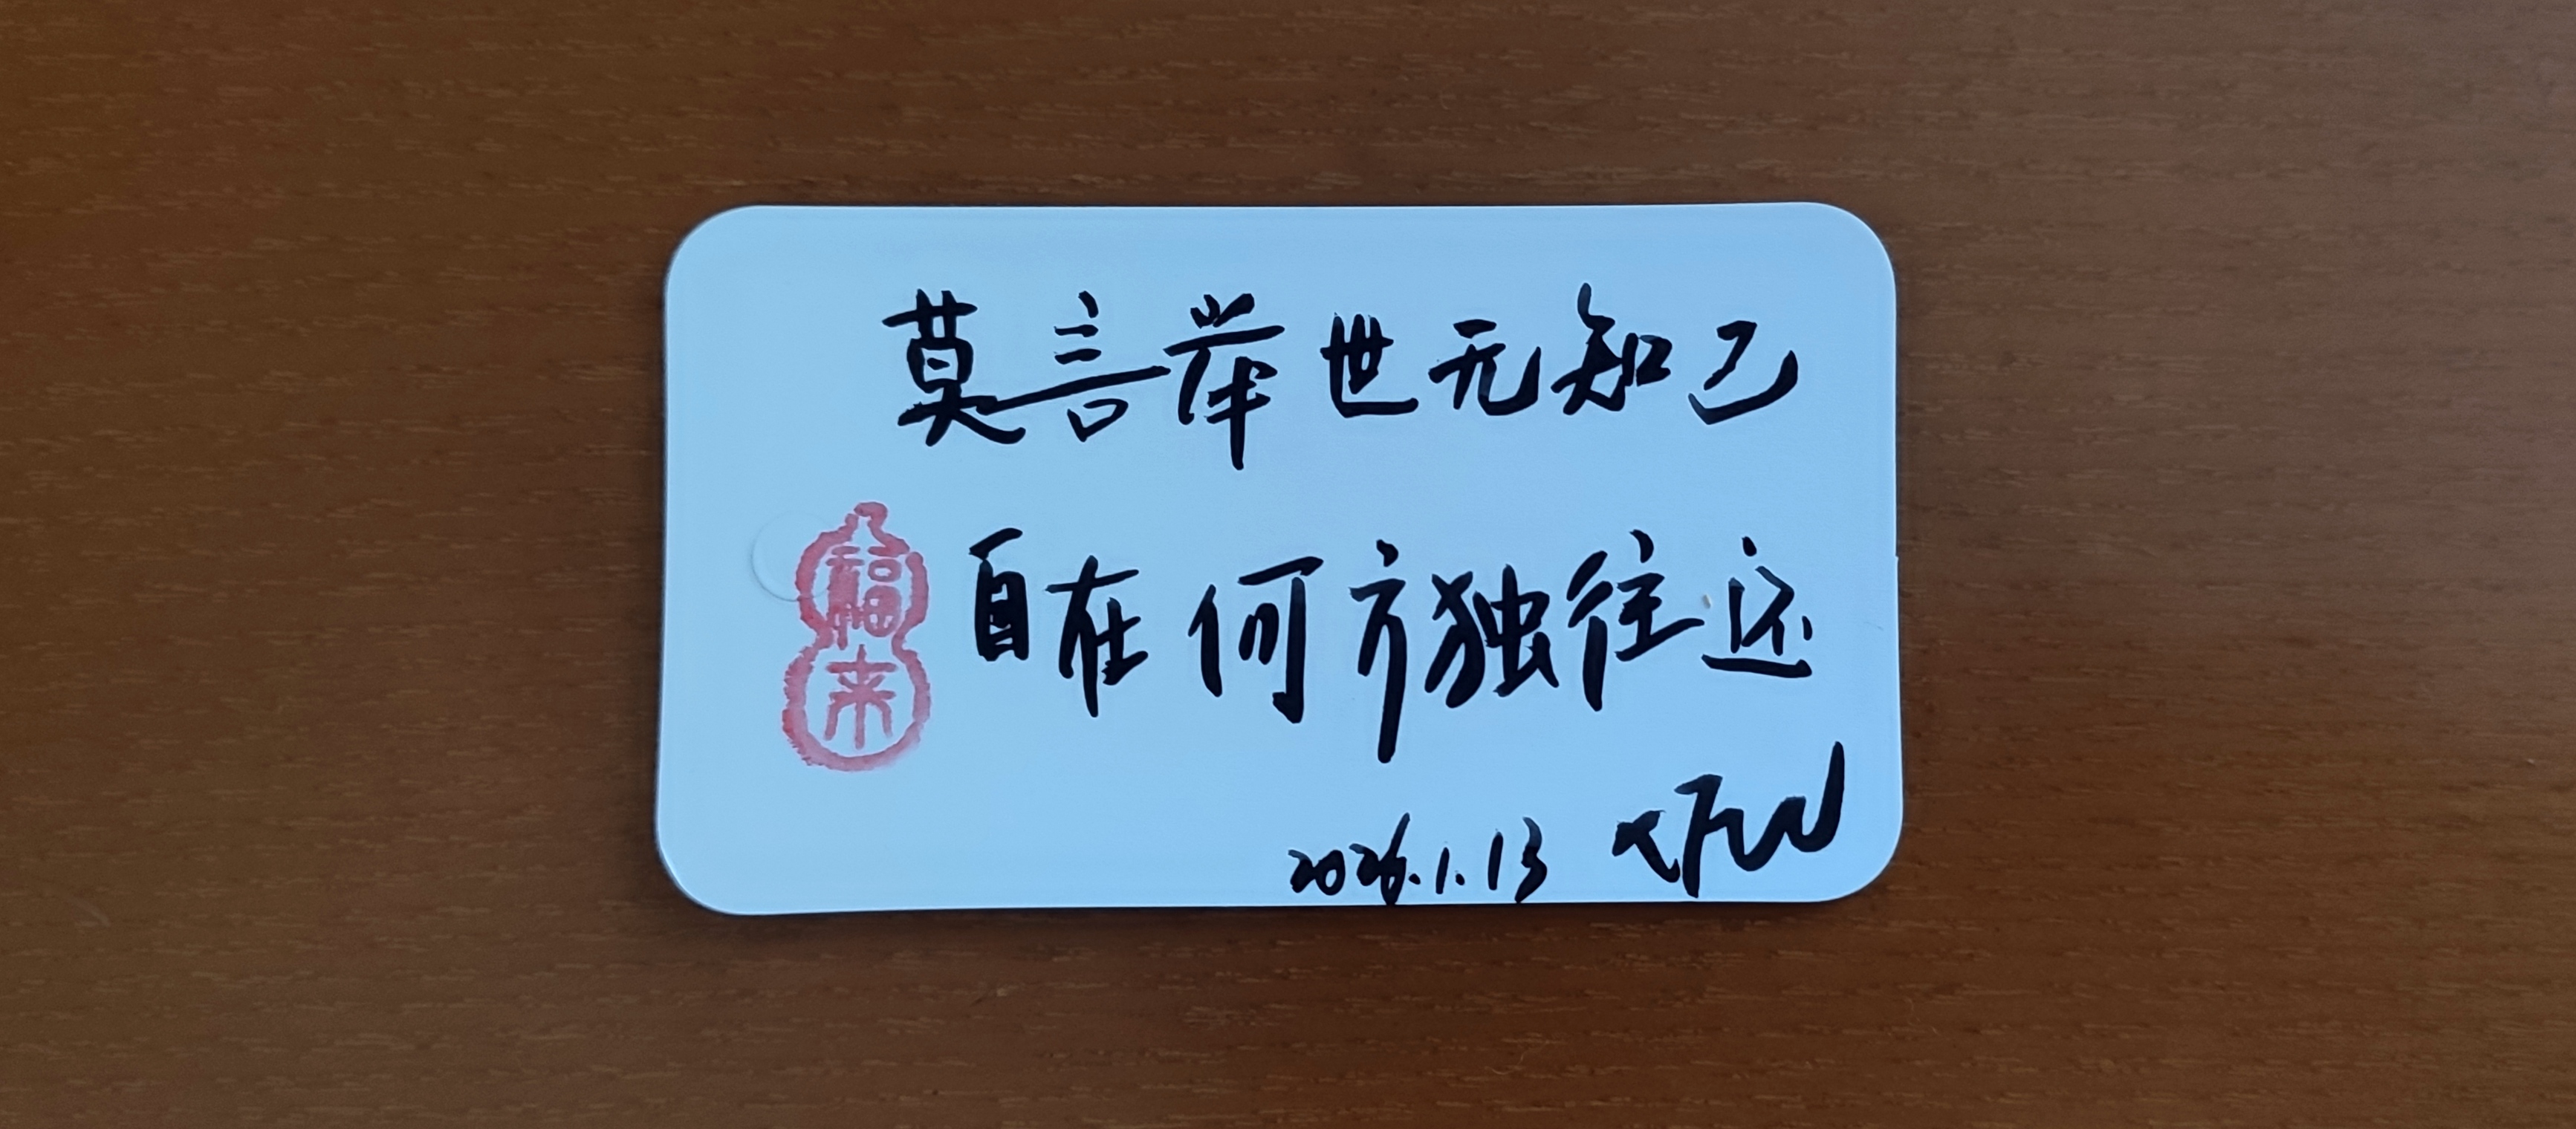 莫言举世无知己
自在何方独往还
福来
2026.1.13